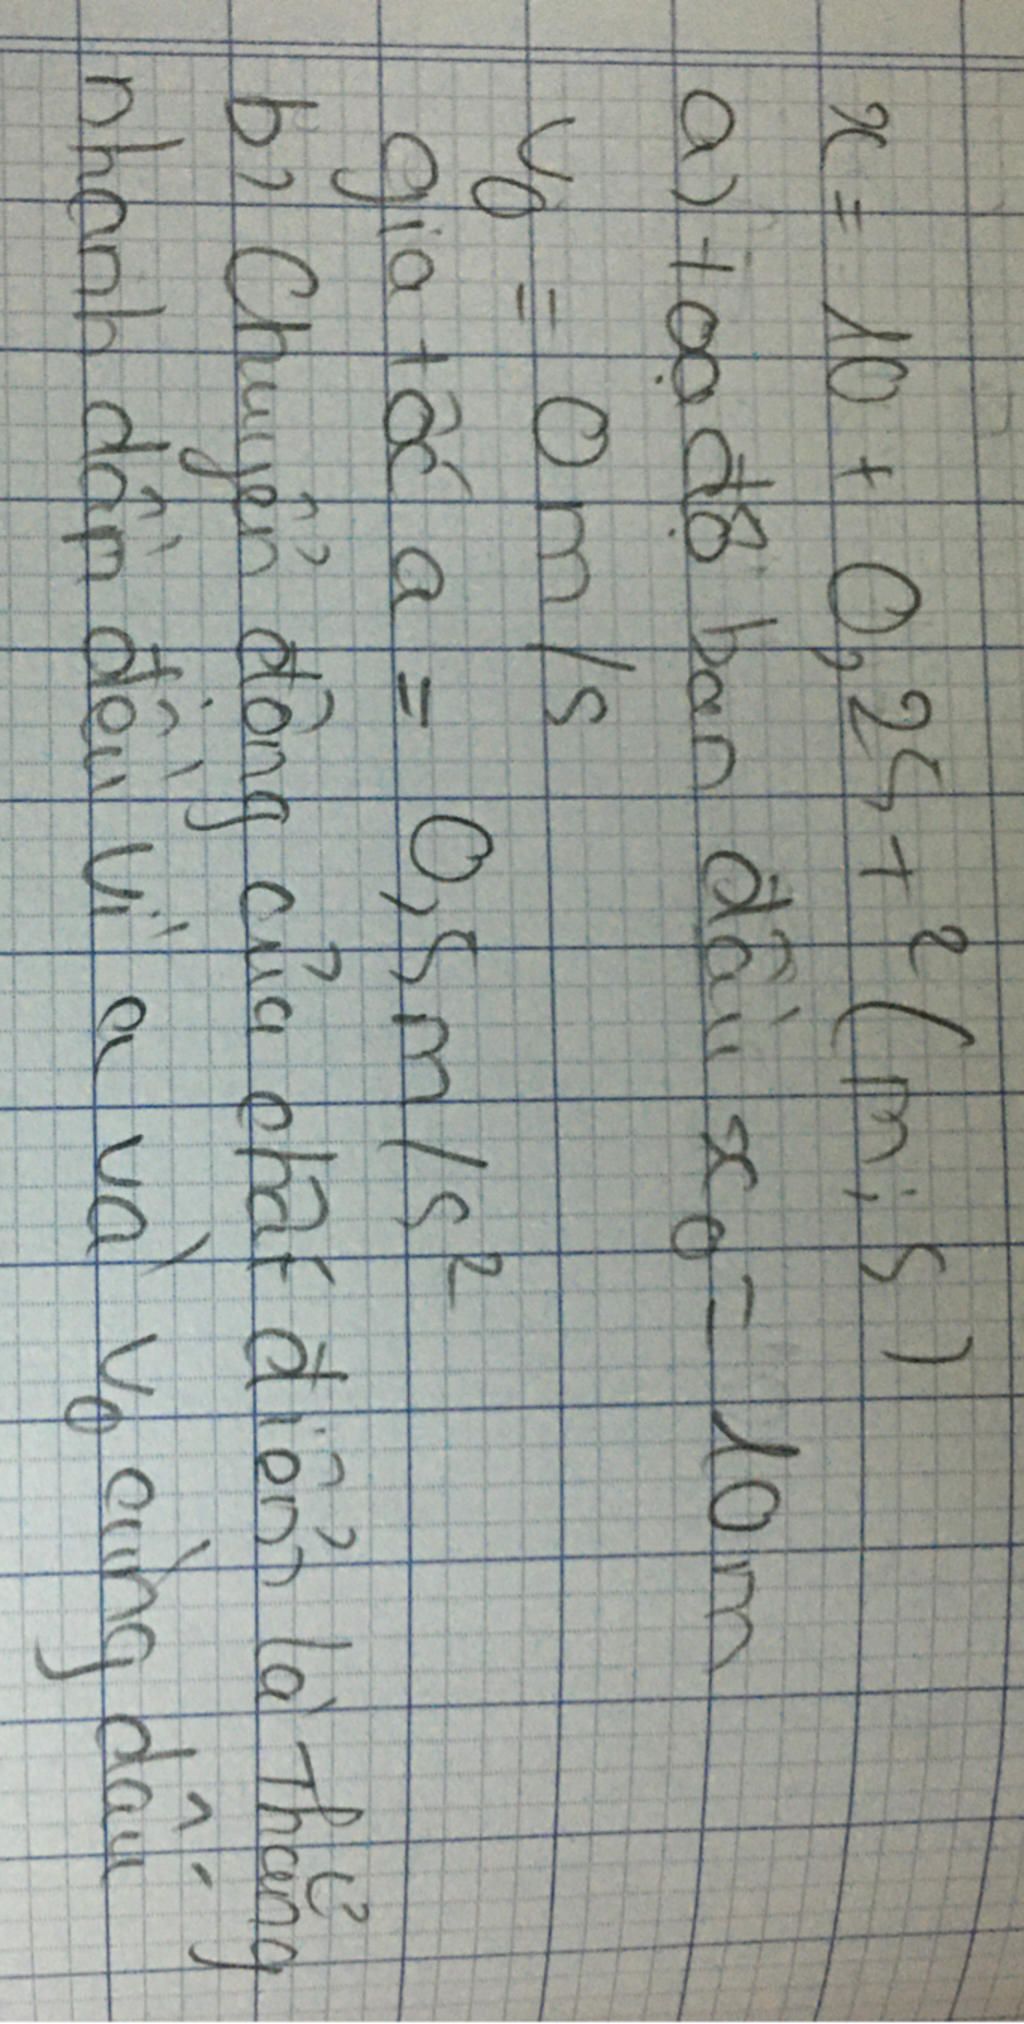 x = 10 + 0,25t² (m; s)
a) toạ độ ban đầu x₀ = 10m
v₀ = 0 m/s
gia tốc a = 0,5m/s²
b) Chuyển động của chất điểm là Thẳng
nhanh dần đều vì a và v₀ cùng dấu